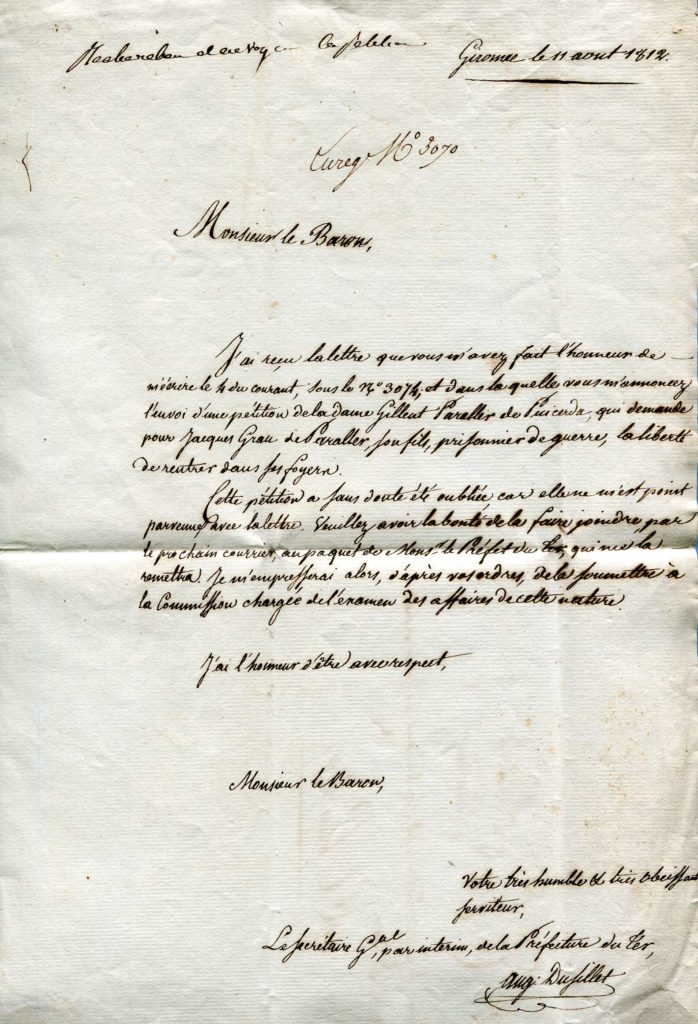 la pétition
Gironne le 11 aout 1812.
Enreg. N° 3070
Monsieur le Baron,
J'ai reçu la lettre que vous m'avez fait l'honneur de —
m'écrire le 4 du courant, sous le N° 3074, et dans laquelle vous m'annoncez
l'envoi d'une pétition de la dame Gilleut Paraller de Puicerda, qui demande
pour Jacques Grau de Paraller, son fils, prisonnier de guerre, la liberté
de rentrer dans ses foyers.
Cette pétition a sans doute été oubliée car elle ne m'est point
parvenue avec la lettre. Veuillez avoir la bonté de la faire joindre, par
le prochain courrier, au paquet de Monsr. le Préfet du Ter, qui me la
remettra. Je m'empresserai alors, d'après vos ordres, de le soumettre à
la Commission chargée de l'examen des affaires de cette nature.
J'ai l'honneur d'être avec respect,
Monsieur le Baron,
Votre très humble & très obéissant
serviteur,
Le Secrétaire Gal, par interim, de la Préfecture du Ter,
Aug. Dusillet